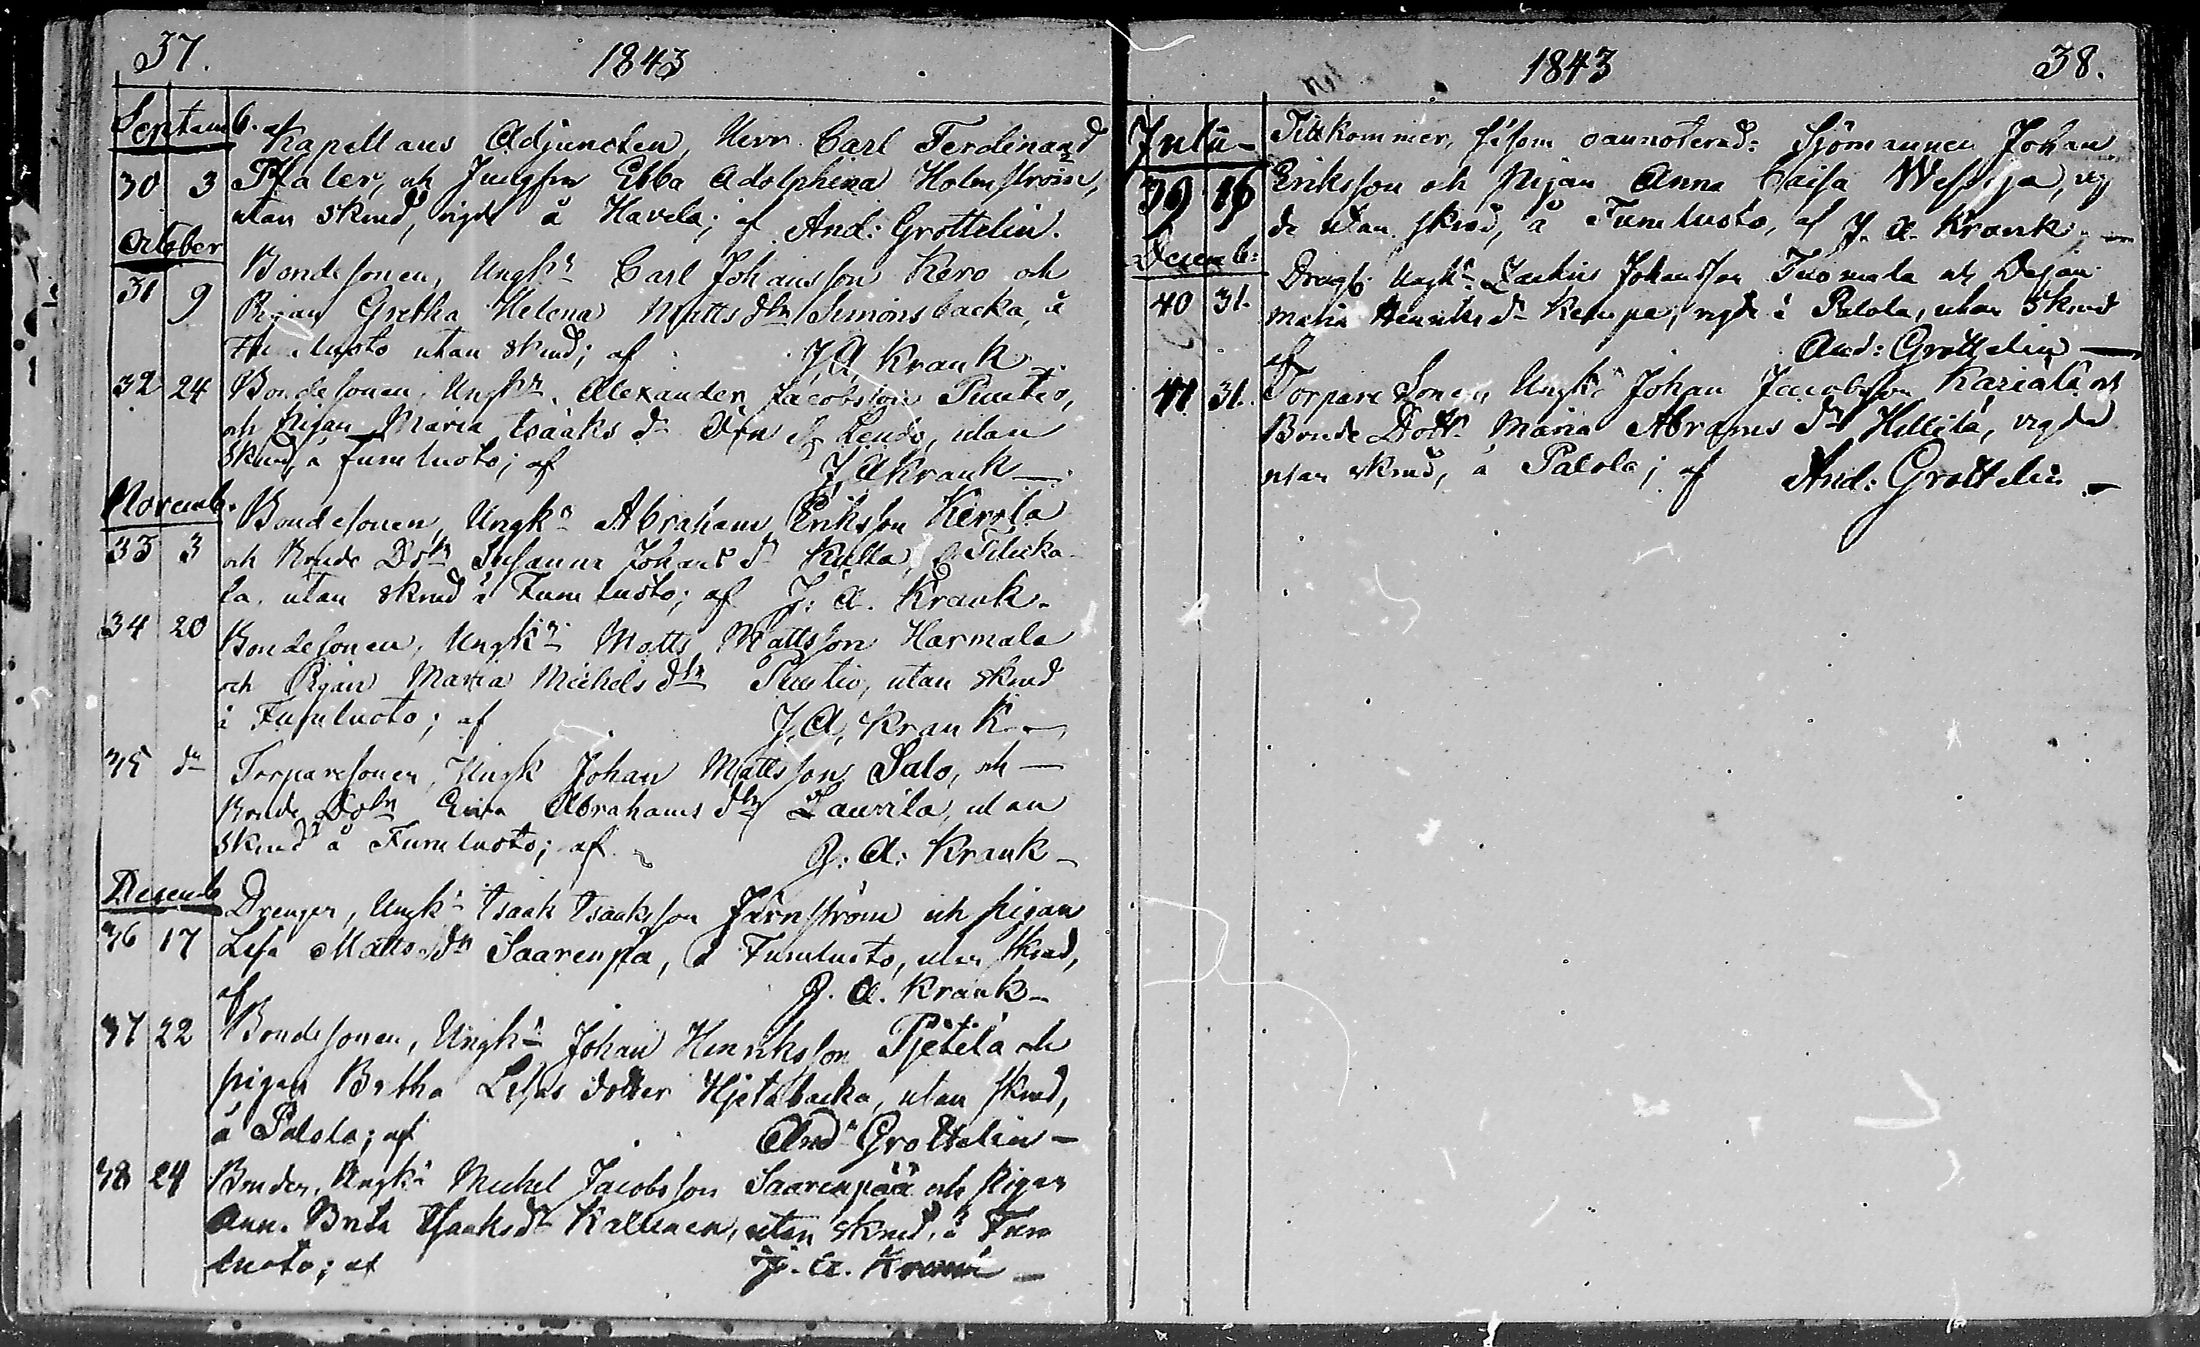 37. 1843
Septemb. af
Kapellans Adjuncten, Herr Carl Ferdinand
30 3 Thaler, och Jungfru Ebba Adolphina Holmström,
utan skrud, vigde å Havela; af And: Grottelin.
October
Bondesonen, Ungk:n Carl Johansson Kero och
31 9 Pigan Gretha Helena Mattsdtr Simonsbacka, å
Fumluoto utan skrud; af J. A. Krank
32 24 Bondesonen, Ungk:n Alexander Jacobsson Puutio,
och Pigan Maria Isaaks dr utan
skrud, å Fumluoto; af J. A. Krank —
Novemb.
Bondesonen, Ungk:n Abraham Eriksson Kerola
33 3 och Bonde Dotn Susanna Johans dr Kulla,
la, utan skrud å Fumluoto; af J: A. Krank.
34 20 Bondesonen, Ungk:n Matts Mattsson Harmala
och Pigan Maria Michels dtr Puutio, utan skrud
å Fumluoto; af J. A. Krank —
35 dn Torparesonen, Ungk Johan Mattsson Salo, och —
Bonde Dotn Abrahams dtr Laurila, utan
skrud å Fumluoto; af J: A: Krank —
Decemb
Drengen, Ungk:n Isaak Isaaksson Järnström och pigan
36 17 Lisa Matts dtr Saarenpä, å Fumluoto, utan skrud,
af J. A. Krank —
37 22 Bondesonen, Ungk:n Johan Henriksson Pjetilä och
pigan Britha dotter Hjetabacka, utan skrud,
å Palola; af And: Grottelin —
38 24 Bonden, Ungk:n Mickel Jacobsson Saarenpää och Pigan
Ann. Brita Isaksdr Kallinen, utan skrud, å Fum
luoto; af J. A. Krank —
1843 38.
Julii — Tillkommer, såsom oannoterad: Sjömannen Johan
39 16 Eriksson och Pigan Anna Caisa vig
de utan skrud, å Fumluoto, af J. A. Krank. —
Decemb:
Dreng, Ungk:n Johansson Tuomala och Pigan
40 31. Maria Henriks dr Kempe, vigde å Palola, utan skrud
af And: Grottelin —
41 31. Torpare Sonen, Ungk:n Johan Jacobsson Kariala och
Bonde Dottr Maria Abrams dtr Hellilä, vigde
utan skrud, å Palola; af And: Grottelin —